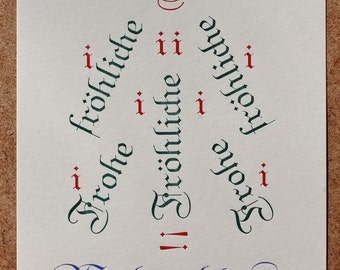 i ii i
fröhliche
fröhliche
i i
Fröhliche
Frohe
Frohe
i i
!!